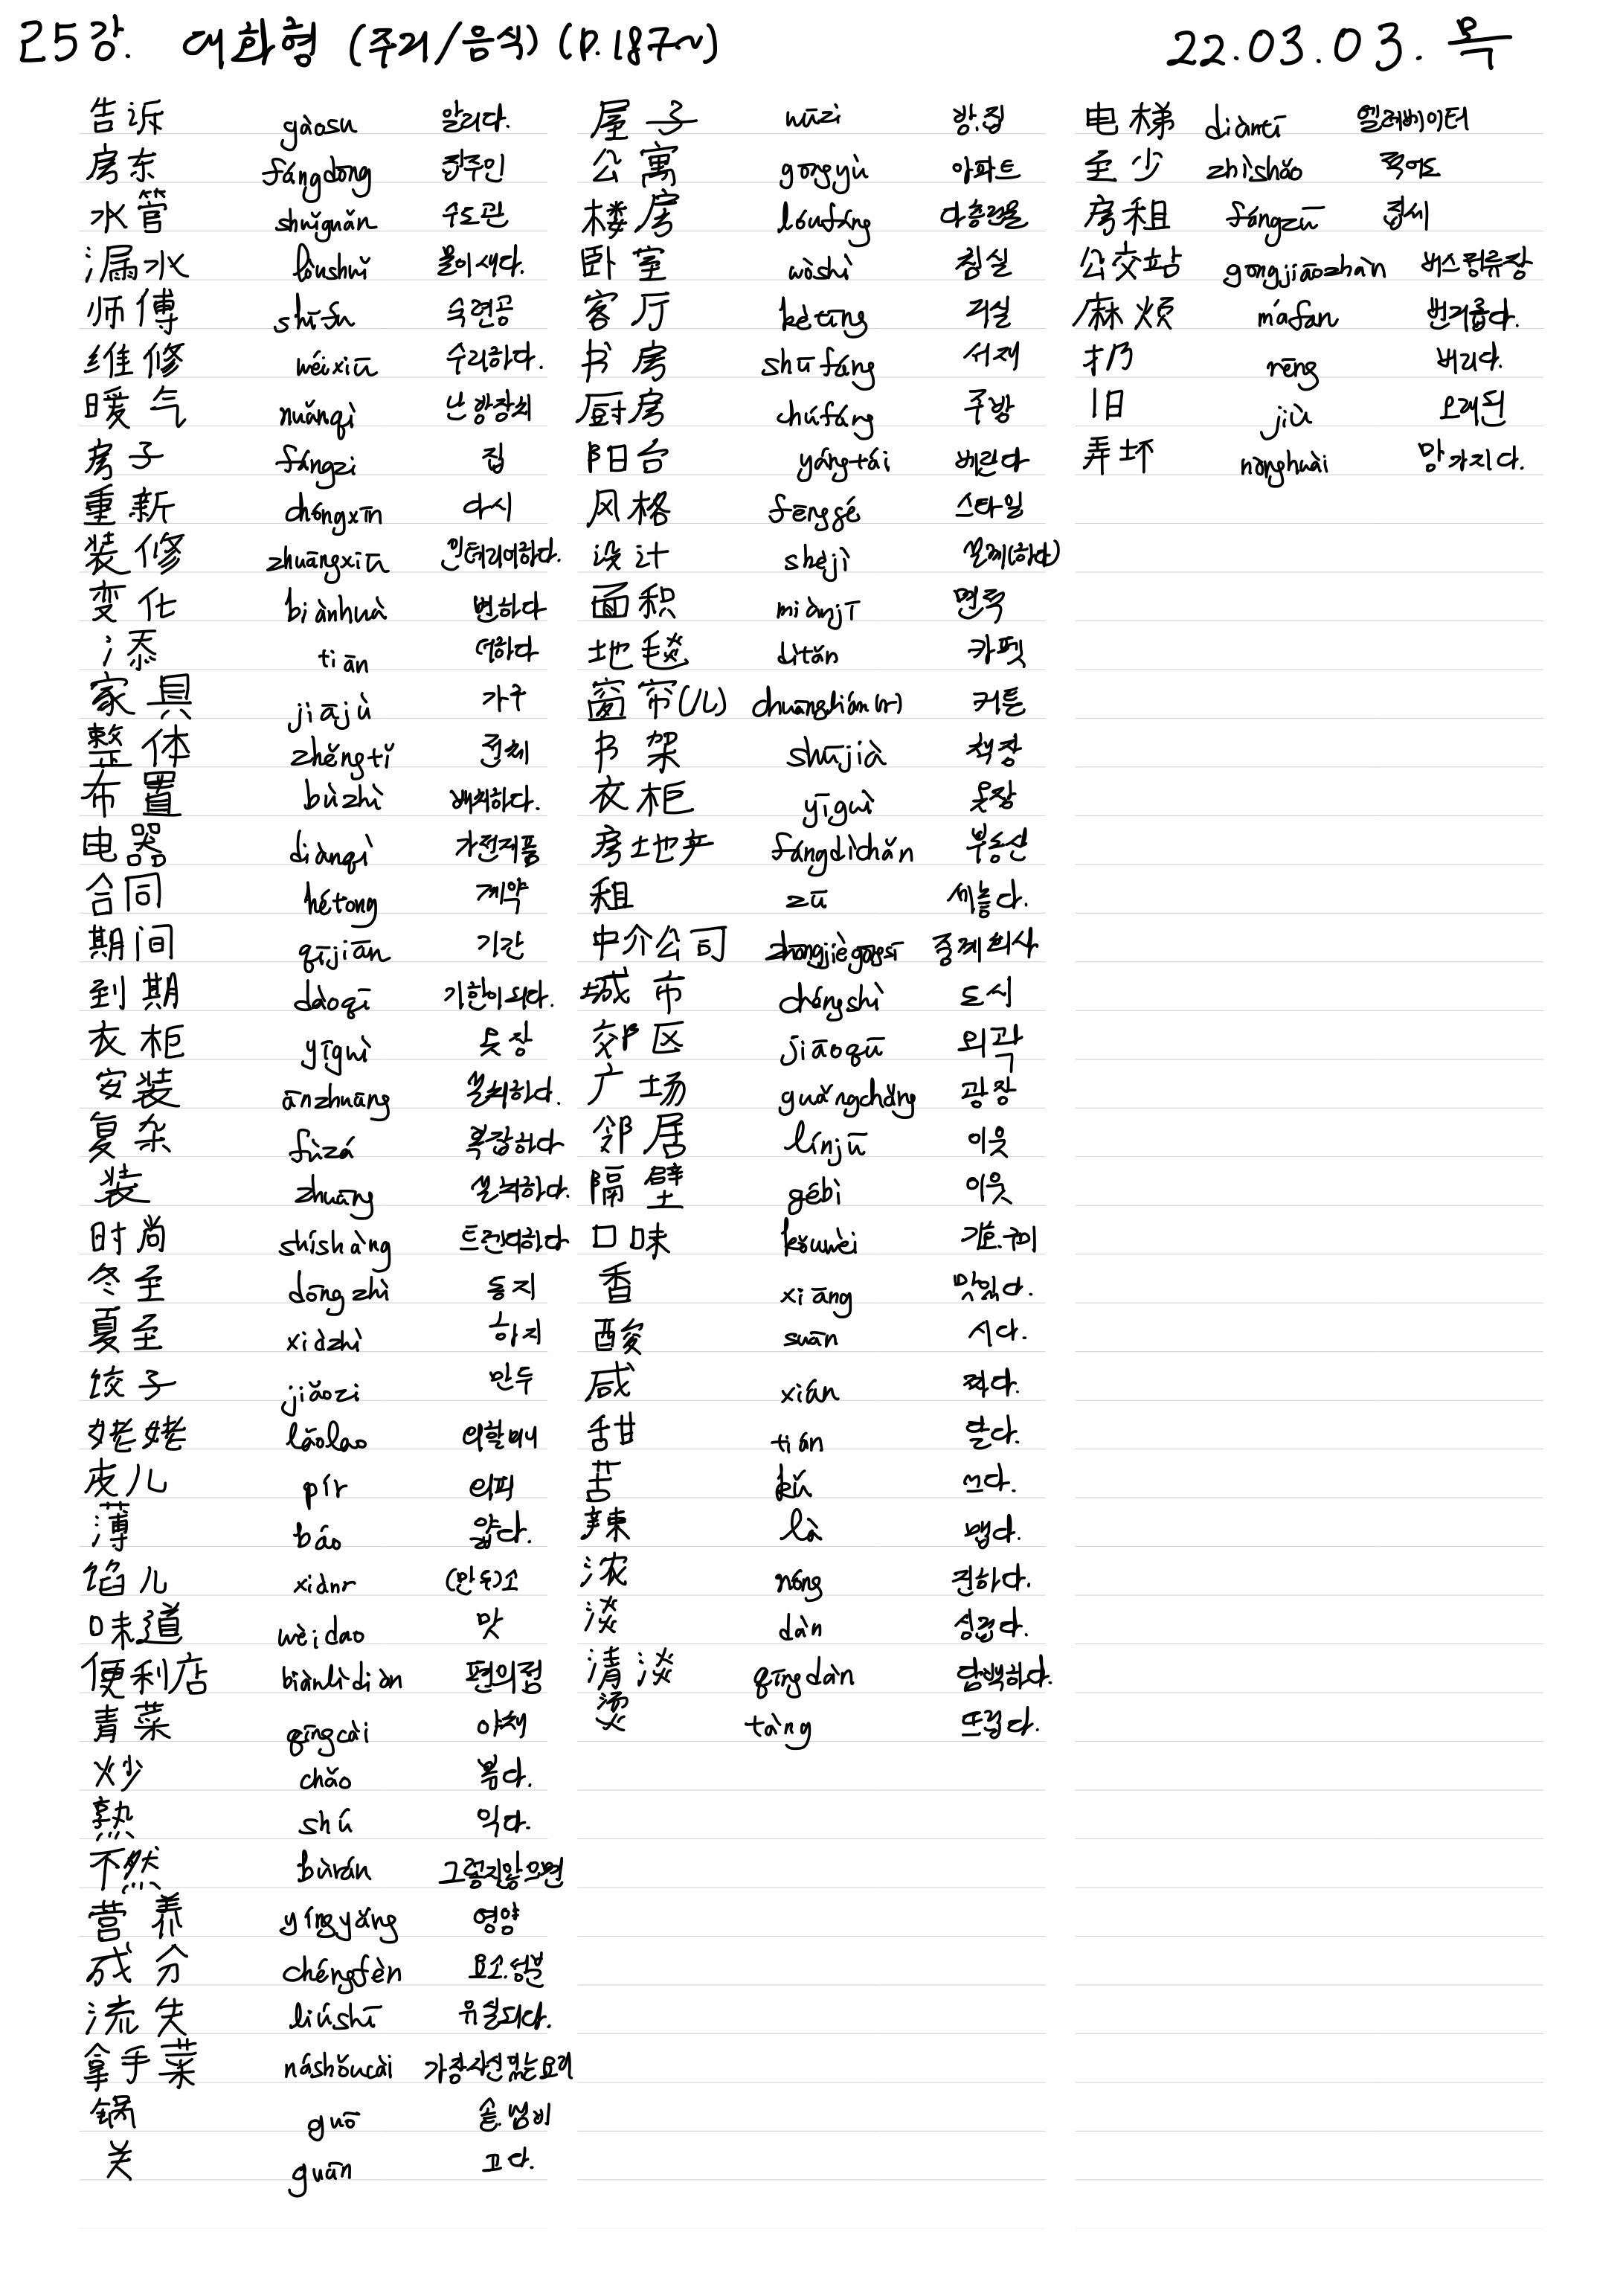 25강. 대화형 (주거/음식) (P.187~) 22.03.03. 목
告诉 gàosu 알리다.
房东 fángdōng 집주인
水管 shuǐguǎn 수도관
漏水 lòushuǐ 물이 새다.
师傅 shīfu 숙련공
维修 wéixiū 수리하다.
暖气 nuǎnqì 난방장치
房子 fángzi 집
重新 chóngxīn 다시
装修 zhuāngxiū 인테리어하다.
变化 biànhuà 변하다
添 tiān 더하다
家具 jiājù 가구
整体 zhěngtǐ 전체
布置 bùzhì 배치하다.
电器 diànqì 가전제품
合同 hétong 계약
期间 qījiān 기간
到期 dàoqī 기한이되다.
衣柜 yīguì 옷장
安装 ānzhuāng 설치하다.
复杂 fùzá 복잡하다
装 zhuāng 설치하다.
时尚 shíshàng 트렌디하다
冬至 dōngzhì 동지
夏至 xiàzhì 하지
饺子 jiǎozi 만두
姥姥 lǎolao 외할머니
皮儿 pír 외피
薄 báo 얇다.
馅儿 xiànr (만두)소
味道 wèidao 맛
便利店 biànlìdiàn 편의점
青菜 qīngcài 야채
炒 chǎo 볶다.
熟 shú 익다.
不然 bùrán 그렇지않으면
营养 yíngyǎng 영양
成分 chéngfèn 요소.성분
流失 liúshī 유실되다.
拿手菜 náshǒucài 가장자신있는요리
锅 guō 솥.냄비
关 guān 끄다.
屋子 wūzi 방.집
公寓 gōngyù 아파트
楼房 lóufáng 다층건물
卧室 wòshì 침실
客厅 kètīng 거실
书房 shūfáng 서재
厨房 chúfáng 주방
阳台 yángtái 베란다
风格 fēnggé 스타일
设计 shèjì 설계(하다)
面积 miànjī 면적
地毯 dìtǎn 카펫
窗帘(儿) chuānglián(r) 커튼
书架 shūjià 책장
衣柜 yīguì 옷장
房地产 fángdìchǎn 부동산
租 zū 세놓다.
中介公司 zhōngjiègōngsī 중개회사
城市 chéngshì 도시
郊区 jiāoqū 외곽
广场 guǎngchǎng 광장
邻居 línjū 이웃
隔壁 gébì 이웃
口味 kǒuwèi 기호.구미
香 xiāng 맛있다.
酸 suān 시다.
咸 xián 짜다.
甜 tián 달다.
苦 kǔ 쓰다.
辣 là 맵다.
浓 nóng 진하다.
淡 dàn 싱겁다.
清淡 qīngdàn 담백하다.
烫 tàng 뜨겁다.
电梯 diàntī 엘레베이터
至少 zhìshǎo 적어도
房租 fángzū 집세
公交站 gōngjiāozhàn 버스정류장
麻烦 máfan 번거롭다.
扔 rēng 버리다.
旧 jiù 오래된
弄坏 nònghuài 망가지다.